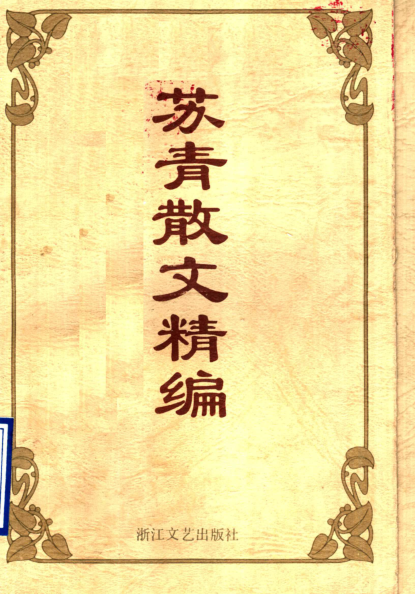 苏青散文精编
浙江文艺出版社